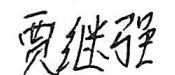 贾继强